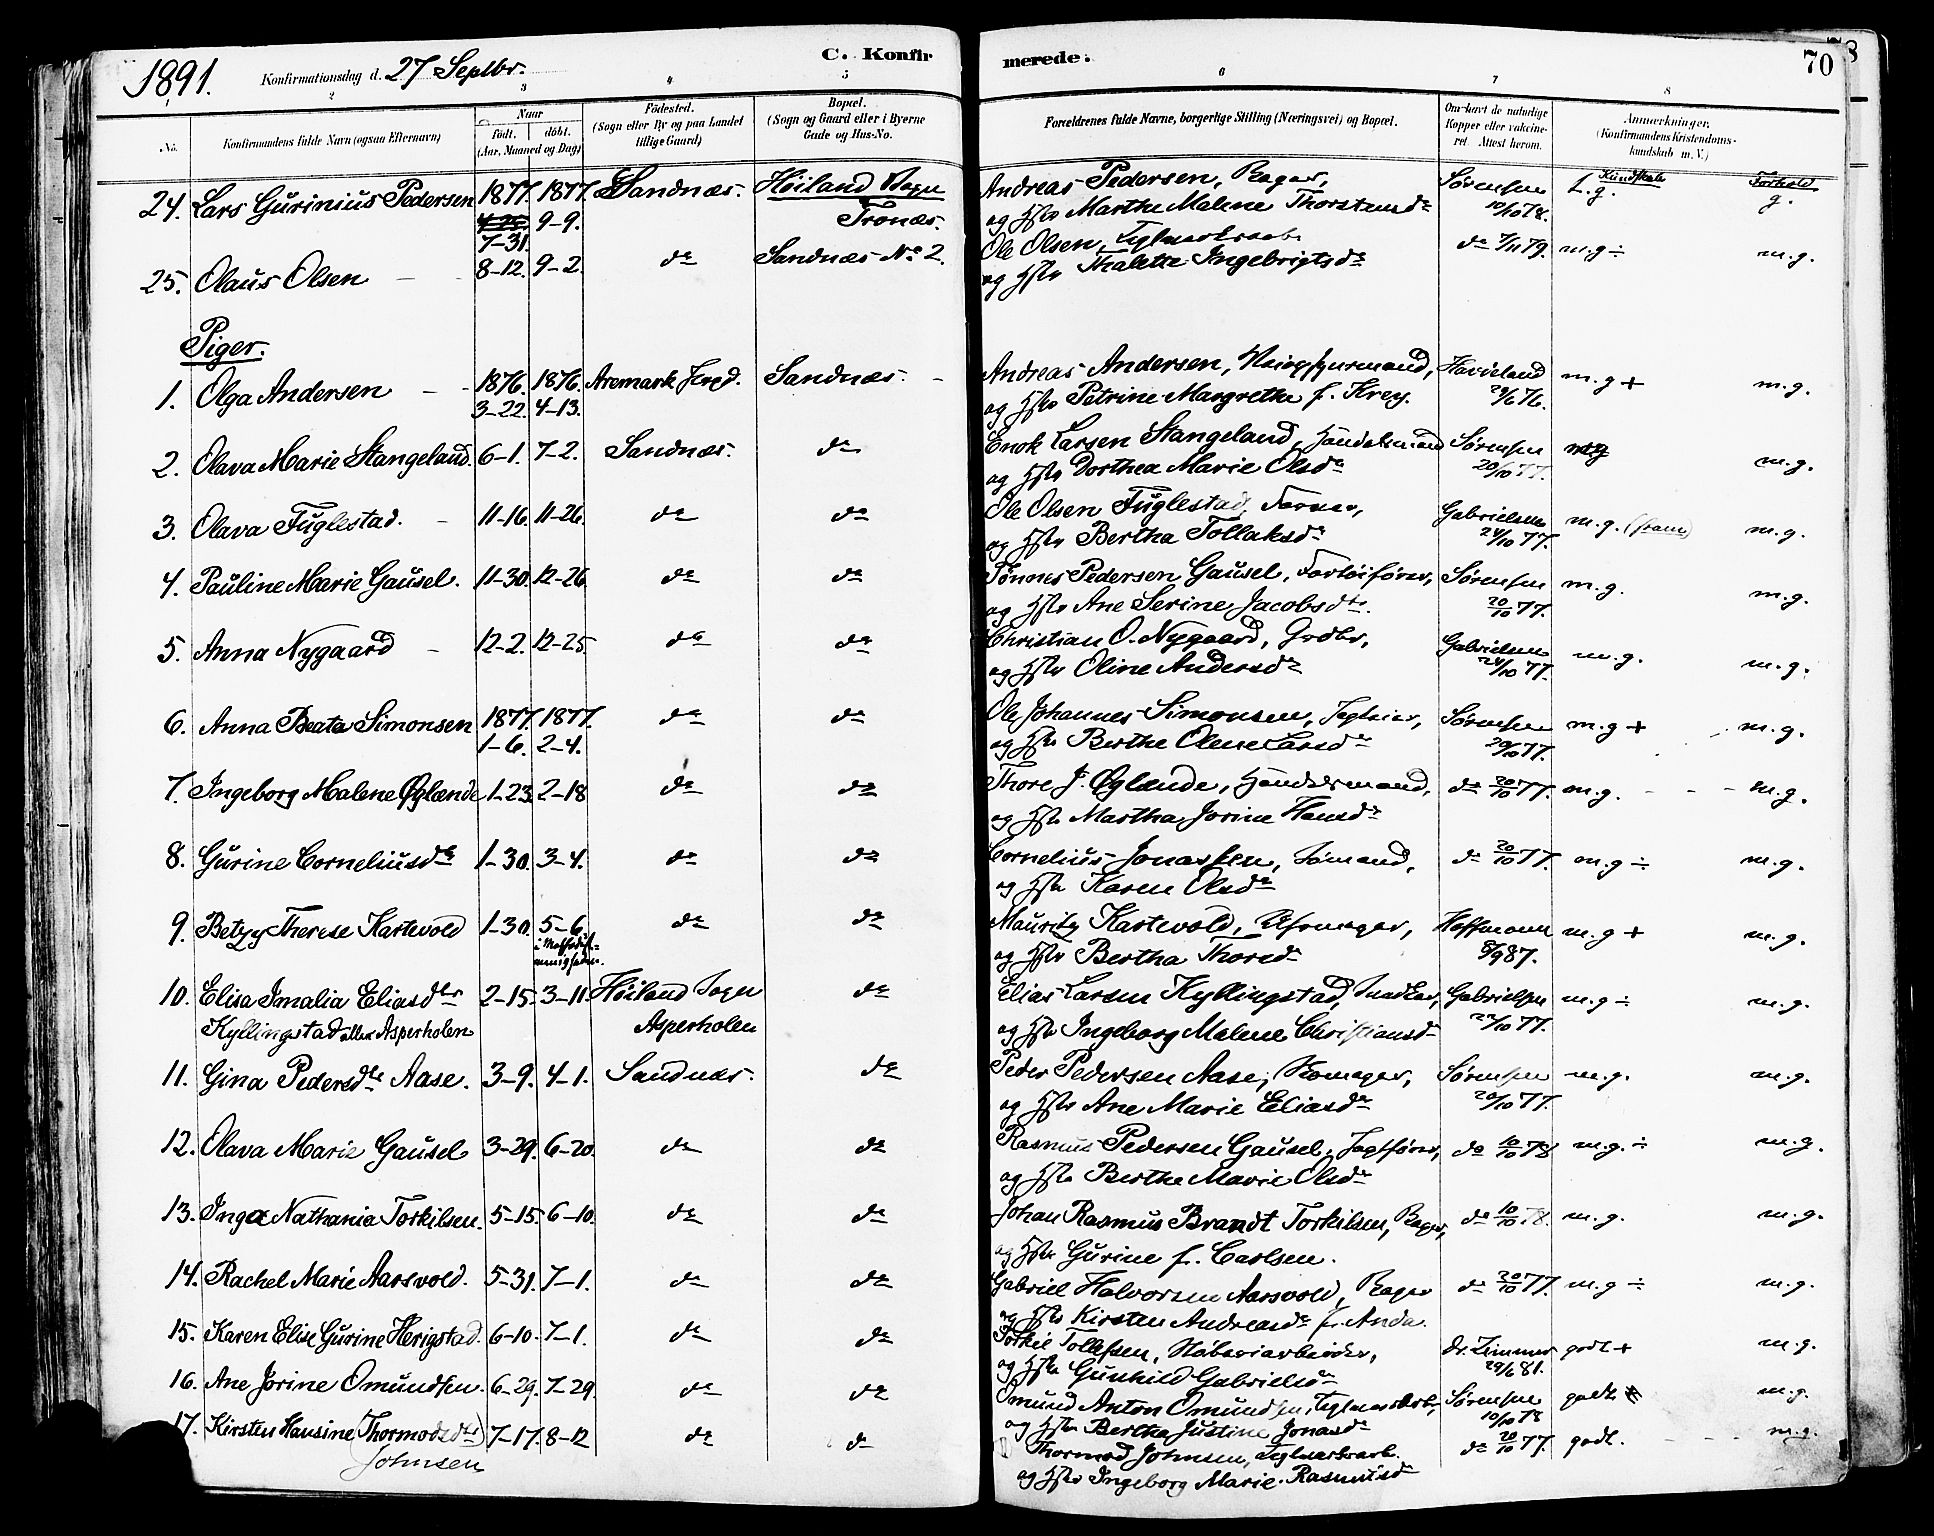 1891. Konfirmationsdag d. 27 Septbr. C. Konfirmerede. 70
1 2 3 4 5 6 7 8
No. Konfirmandens fulde Navn (ogsaa Efternavn) Naar Født. døbt. (Aar, Maaned og Dag) Fødested. (Sogn eller By og paa Landet tillige Gaard) Bopæl. (Sogn og Gaard eller i Byerne Gade og Hus-No. Forældrenes fulde Navne, borgerlige Stilling (Næringsvei) og Bopæl. Om havt de naturlige Kopper eller vaccineret. Attest herom. Anmærkninger. (Konfirmandens Kristendomskundskab m. V.)
Kundskab Forhold
24. Lars Gurinius Pedersen 1877. 1877. Sandnæs. Høiland Sogn Andreas Pedersen, Bager, Sørensen t.g. g.
7-31. 9-9. Tronæs. og Hstr Marthe Malene Thorstensdr 10/10 78.
25. Olaus Olsen 8-12. 9-2. do Sandnæs No 2. Ole Olsen, do 7/11 79. m.g ÷ m.g.
og Hstr Thalette Ingebrigtsdr
Piger.
1. Olga Andersen 1876. 1876. Aremark Sandnæs. Andreas Andersen, m.g + m.g.
3-22. 4-13. og Hstr Petrine Margrethe f. Krey. 29/6 76.
2. Olava Marie Stangeland. 6-1. 7-2. Sandnæs. do Enok Larsen Stangeland, Handelsmand Sørensen mg m.g.
og Hstr Dorthea Marie Olsdr 20/10 77.
3. Olava Fuglestad. 11-16. 11-26. do do Ole Olsen Fuglestad, Garver, Gabrielsen m.g. m.g.
og Hstr Bertha Tollaksdr 24/10 77.
4. Pauline Marie Gausel. 11-30. 12-26. do do Tønnes Pedersen Gausel, Fartøifører, Sørensen m.g. m.g.
og Hstr Ane Serine Jacobsdtr. 20/10 77.
5. Anna Nygaard 12-2. 12-25. do do Christian O. Nygaard, Gaardbr, Gabrielsen m.g. m.g.
og Hstr Oline Andersdr 24/10 77.
6. Anna Beata Simonsen 1877. 1877. do do Ole Johannes Simonsen, Sørensen m.g + m.g.
1-6. 2-4. og Hstr Berthe Olene Larsdr 20/10 77.
7. Ingeborg Malene Øglænde 1-23. 2-18 do do Thore J. Øglænde, Handelsmand, do 20/10 77. m.g. m.g.
og Hstr Martha Jorine Hansdr
8. Gurine Corneliusdtr 1-30. 3-4. do do Cornelius Jonassen, Sømand, do 20/10 77. m.g ÷ m.g.
og Hstr Karen Olsdr
9. Betzy Therese Kartevold 1-30. 5-6 do do Mauritz Kartevold, Uhrmager, Hoffmann m.g + m.g.
i Methodistmenigheden. og Hstr Bertha Thorsdr 8/9 87.
10. Elisa Imalia Eliasdtr 2-15. 3-11. Høiland Sogn do Elias Larsen Kyllingstad, Snedker, Gabrielsen m.g ÷ m.g.
Kyllingstad eller Asperholen Asperholen og Hstr Ingeborg Malene Christiansdr 24/10 77.
11. Gina Pedersdtr Aase. 3-9. 4-1. Sandnæs. do Peder Pedersen Aase, Skomager, Sørensen m.g. m.g.
og Hstr Ane Marie Eliasdr 20/10 77.
12. Olava Marie Gausel 3-29. 6-20. do do Rasmus Pedersen Gausel, Jagtfører, do 10/10 78 m.g. ÷ m.g.
og Hstr Berthe Marie Olsdr
13. Inga Nathania Torkilsen. 5-15. 6-10. do do Johan Rasmus Brandt Torkilsen, Bager, do 10/10 78. m.g. m.g.
og Hstr Gurine f. Carlsen.
14. Rachel Marie Aarsvold. 5-31. 7-1. do do Gabriel Halvorsen Aarsvold, Bager do 20/10 77. m.g ÷ m.g.
og Hstr Kirsten Andreasdr f. Anda.
15. Karen Elise Gurine Herigstad. 6-10. 7-1. do do Torkil Tollefsen, Støberiarbeider, dr. Zimmer godt + m.g.
og Hstr Gunhild Gabrielsdr 29/6 81.
16. Ane Jorine Omundsen. 6-29. 7-29. do do Omund Anton Omundsen, Teglværksarb., Sørensen godt m.g.
og Hstr Bertha Justine Jonasdr 10/10 78
17. Kirsten Hansine (Thormodsdtr) 7-17. 8-12 do do Thormod Johnsen, Teglværksarb. do 20/10 77. godt. m.g.
Johnsen og Hstr Ingeborg Marie Rasmusdr